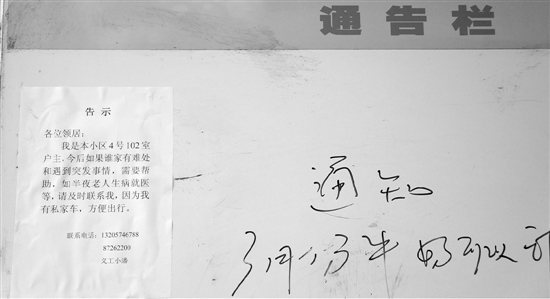 通告栏
告示
各位领居：
我是本小区4号102室
户主，今后如果谁家有难处
和遇到突发事情，需要帮
助，如半夜老人生病就医
等，请及时联系我，因为我
有私家车，方便出行。
联系电话：13205746788
87262200
义工小潘
通知
3月份牛奶可以